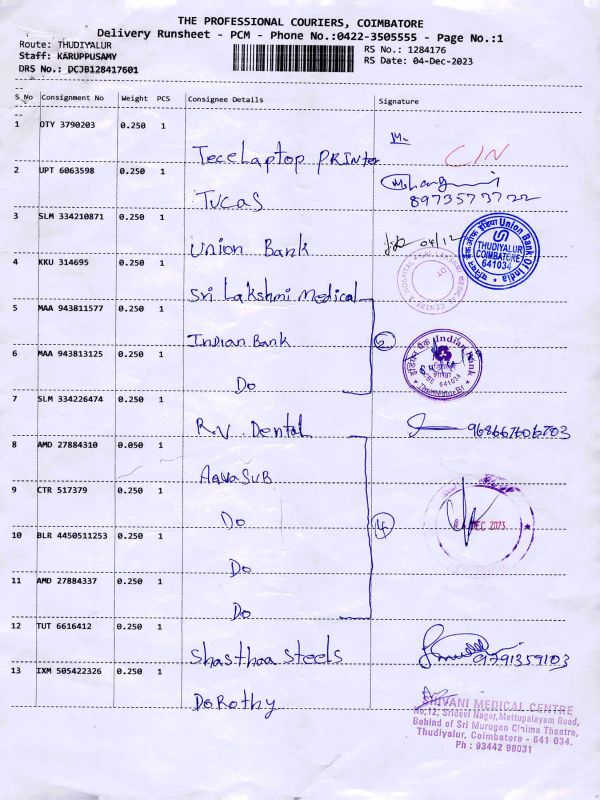 THE PROFESSIONAL COURIERS, COIMBATORE
Delivery Runsheet - PCM - Phone No.:0422-3505555 - Page No.:1
Route: THUDIYALUR
RS No.: 1284176
Staff: KARUPPUSAMY
RS Date: 04-Dec-2023
DRS No.: DCJB128417601
S.No Consignment No Weight PCS Consignee Details Signature
1 OTY 3790203 0.250 1
Tecelaptop PRINter
CIN
2 UPT 6063598 0.250 1
TUCAS
8973573722
3 SLM 334210871 0.250 1
Union Bank
04/12
Union Bank Of India
THUDIYALUR
COIMBATORE
641034
4 KKU 314695 0.250 1
Sri Lakshmi Medical
5 MAA 943811577 0.250 1
Indian Bank
2
इंडियन बैंक Indian Bank
641034
6 MAA 943813125 0.250 1
Do
7 SLM 334226474 0.250 1
R.V. Dental
8 AMD 27884310 0.050 1
AquaSUB
9 CTR 517379 0.250 1
Do
4
DEC 2023
10 BLR 4450511253 0.250 1
Do
11 AMD 27884337 0.250 1
Do
12 TUT 6616412 0.250 1
Shasthaa Steels
9791359103
13 IXM 505422326 0.250 1
DoRothy
SHIVANI MEDICAL CENTRE
No,12, Sridevi Nagar, Mettupalayam Road,
Behind of Sri Murugan Cinima Theatre,
Thudiyalur, Coimbatore - 641 034.
Ph : 93442 98031